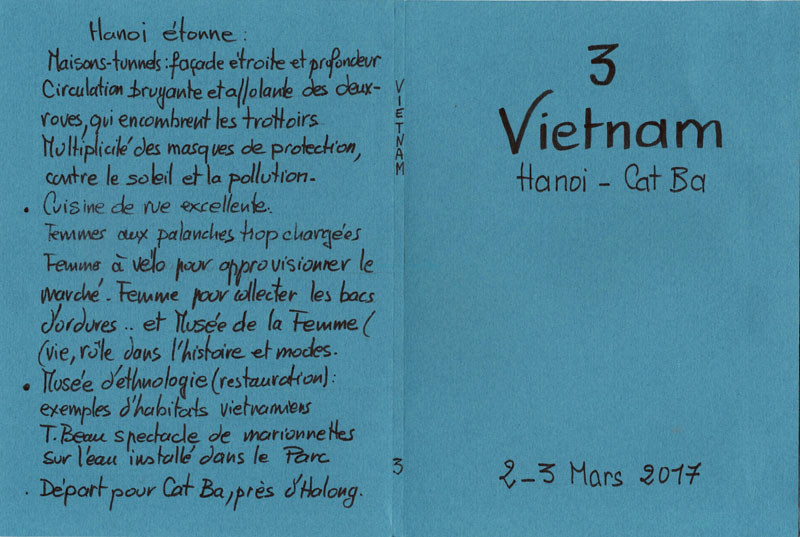 Hanoi étonne :
Maisons-tunnels : façade étroite et profondeur
Circulation bruyante et affolante des deux-
roues, qui encombrent les trottoirs
Multiplicité des masques de protection,
contre le soleil et la pollution-
. Cuisine de rue excellente.
Femmes aux palanches trop chargées
Femme à vélo pour approvisionner le
marché. Femme pour collecter les bacs
d'ordures .. et Musée de la Femme (
(vie, rôle dans l'histoire et modes.
. Musée d'ethnologie (restauration) :
exemples d'habitats vietnamiens
T. Beau spectacle de marionnettes
sur l'eau installé dans le Parc
. Départ pour Cat Ba, près d'Halong.
VIETNAM
3
3
Vietnam
Hanoi - Cat Ba
2-3 Mars 2017